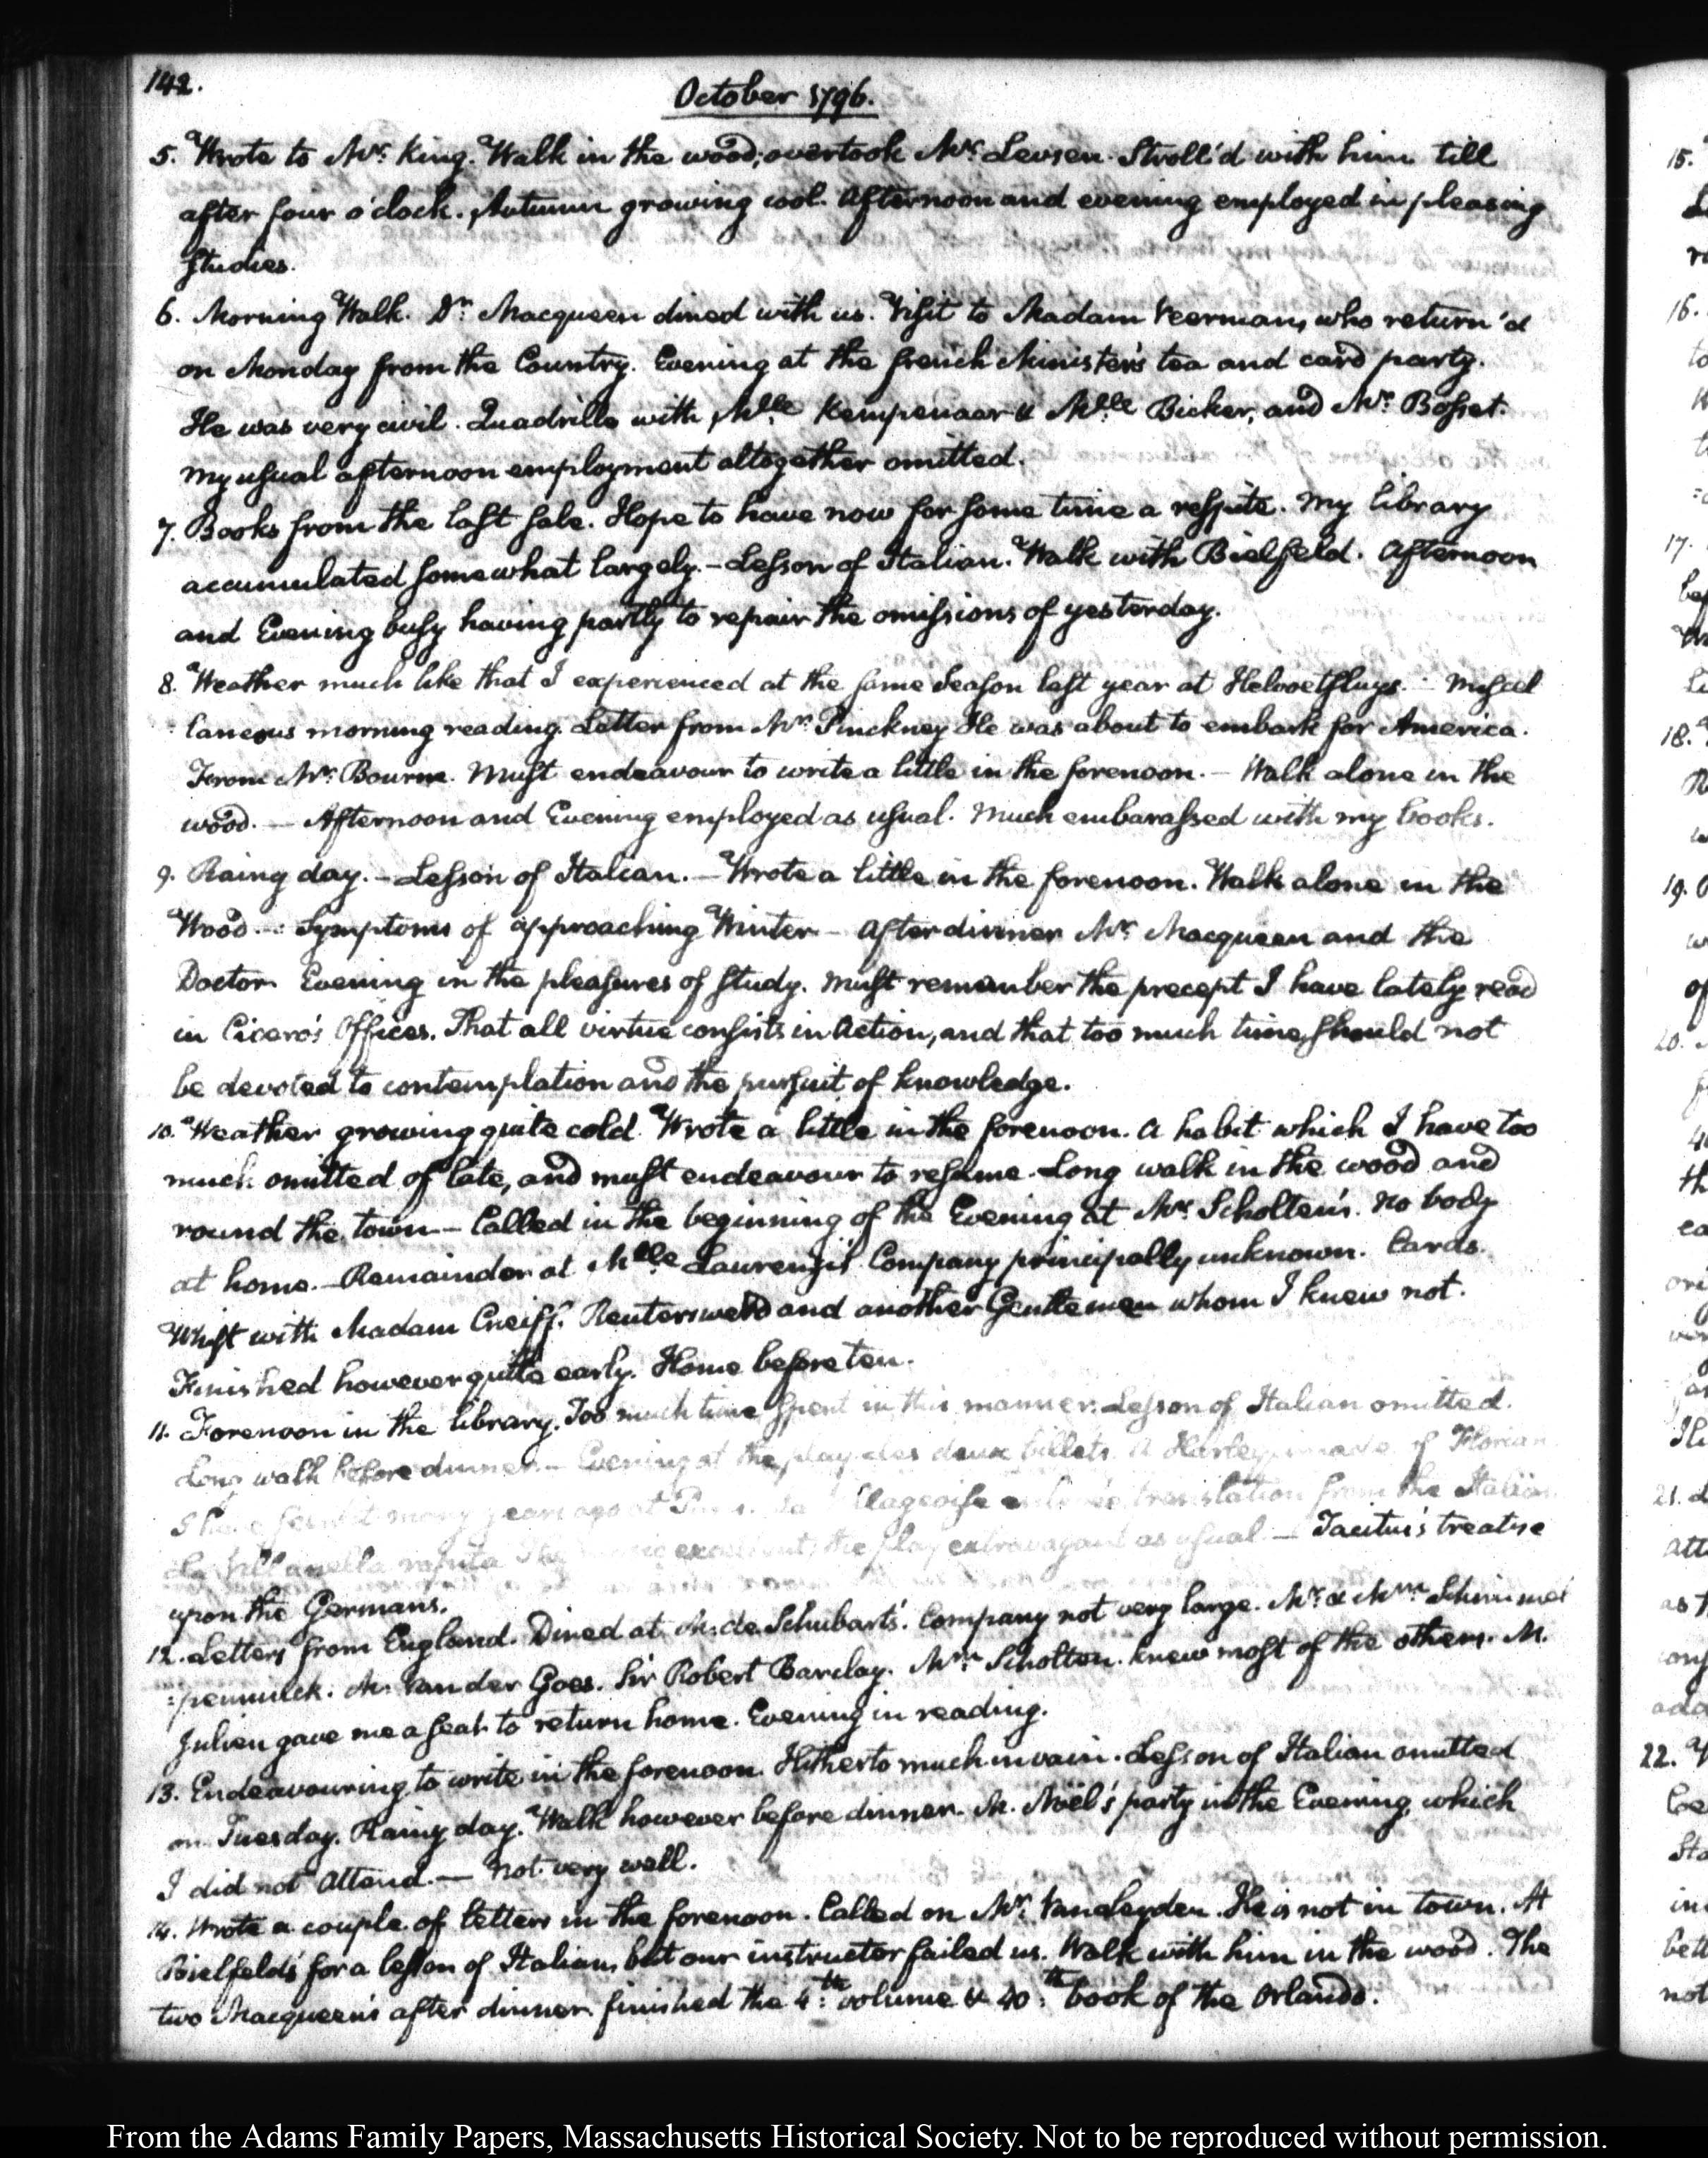 142.
October 1796.
5. Wrote to Mr. King. Walk in the wood; overtook Mr. Levsen. Stroll'd with him till
after four o'clock. Autumn growing cool. Afternoon and evening employed in pleasing
studies.
6. Morning Walk. Dr. Macqueen dined with us. Visit to Madam Veerman, who return'd
on Monday from the Country. Evening at the french Minister's tea and card party.
He was very civil. Quadrille with Mlle. Kempenaar & Mlle. Bicker, and Mr. Bosset.
My usual afternoon employment altogether omitted.
7. Books from the last sale. Hope to have now for some time a respite. My library
accumulated somewhat largely.— Lesson of Italian. Walk with Bielfeld. Afternoon
and Evening busy having partly to repair the omissions of yesterday.
8. Weather much like that I experienced at the same season last year at Helvoetsluys.— Miscel
laneous morning reading. Letter from Mr. Pinckney He was about to embark for America.
From Mr. Bourne. Must endeavour to write a little in the forenoon.— Walk alone in the
wood.— Afternoon and Evening employed as usual. Much embarassed with my books.
9. Rainy day.— Lesson of Italian.— Wrote a little in the forenoon. Walk alone in the
Wood.— Symptoms of approaching Winter— After dinner Mr. Macqueen and the
Doctor. Evening in the pleasures of study. Must remember the precept I have lately read
in Cicero's Offices. That all virtue consists in Action, and that too much time should not
be devoted to contemplation and the pursuit of knowledge.
10. Weather growing quite cold. Wrote a little in the forenoon. A habit which I have too
much omitted of late, and must endeavour to resume. Long walk in the wood and
round the town— Called in the beginning of the Evening at Mr. Scholten's. No body
at home.— Remainder at Mlle Company principally unknown. Cards.
Whist with Madam Creiff. Reutersward and another Gentleman whom I knew not.
Finished however quite early. Home before ten.
11. Forenoon in the library. Too much time spent in this manner. Lesson of Italian omitted.
Long walk before dinner.— Evening at the play des deux billets. A of Florian
I have many years ago at translation from the Italian
La Villanella rapita. The excellent, the play extravagant as usual.— Tacitus's treatise
upon the Germans.
12. Letters from England. Dined at M. de Schubart's. Company not very large. Mr. & Mrs. Schimmel
:penninck. M. Van der Goes. Sir Robert Barclay. Mrs. Scholten. Knew most of the others. M.
Julien gave me a seat to return home. Evening in reading.
13. Endeavouring to write in the forenoon. Hitherto much in vain. Lesson of Italian omitted
on Tuesday. Rainy day. Walk however before dinner. M. Noël's party in the Evening, which
I did not attend.— Not very well.
14. Wrote a couple of letters in the forenoon. Called on Mr. Vanleyden. He is not in town. At
Bielfeld's for a lesson of Italian, but our instructor failed us. Walk with him in the wood. The
two Macqueen's after dinner. finished the 4th. volume & 40th. book of the Orlando.
15.
16.
17.
18.
19.
20.
21.
22.
From the Adams Family Papers, Massachusetts Historical Society. Not to be reproduced without permission.